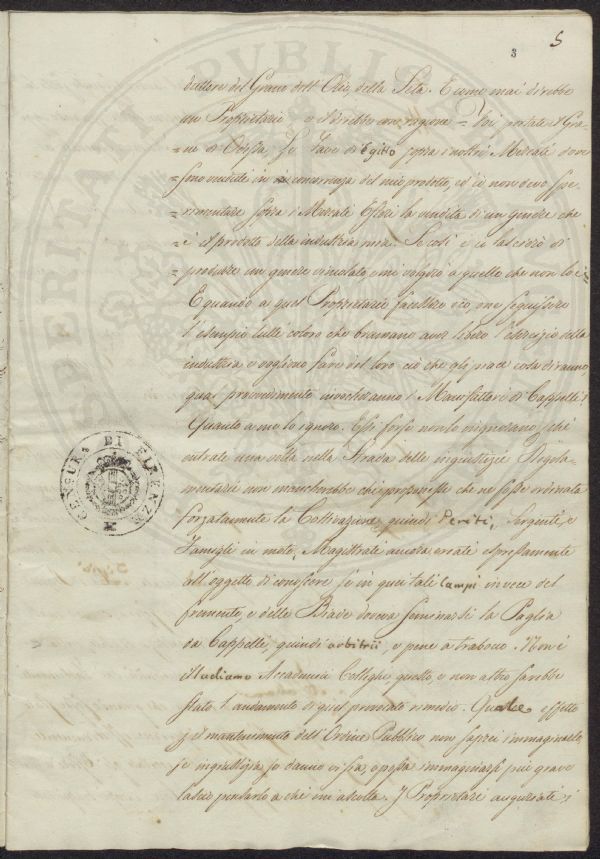 3
5
duttore del Grano dell'Olio della Seta. E come mai direbbe
un Proprietario e direbbe con ragione = Voi portate il Gra-
= no di Odessa Le Fave di Egitto sopra i nostri Mercati dove
= sono vendute in concorrenza del mio prodotto, ed io non devo spe-
= rimentare sopra i Mercati Esteri la vendita di un genere che
= è il prodotto della industria mia. Se così è io lascerò di
= produrre un genere vincolato, e mi volgerò a quello che non lo è =
E quando a quel Proprietario facessero eco, e ne seguissero
l'esempio tutti coloro che bramano aver libero l'esercizio della
industria e vogliono fare del loro ciò che gli piace cosa diranno
quai provvedimenti invocheranno i Manifattori di Cappelli?
Quanto a me lo ignoro. Essi forse non lo ignorano, chè
entrati una volta nella strada delle ingiustizie Regola-
mentarie non mancherebbe chi proponesse che ne fosse ordinata
forzatamente la Coltivazione, quindi Periti, Sergenti, e
Famigli in moto, Magistrati ancora creati espressamente
all'oggetto di conoscere se in quei tali Campi invece del
frumento, e delle Biade doveva seminarsi la Paglia
da Cappelli, quindi arbitrii, e pene a trabocco. Non è
Accademici Colleghi questo, e non altro sarebbe
stato l'andamento di quel provocato rimedio. Quale effetto
pel mantenimento dell'Ordine Pubblico non saprei immaginarlo,
se ingiustizia se danno vi sia, o possa immaginarsi più grave
lascio pensarlo a chi mi ascolta. I Proprietari angariati, i
CENSURA DI FIRENZE
SPERIMENTATI PUBLICA